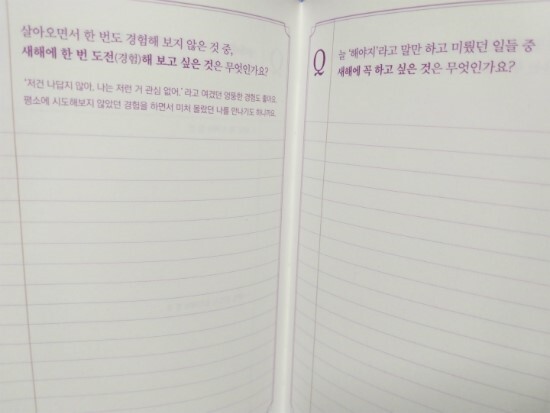 살아오면서 한 번도 경험해 보지 않은 것 중,
새해에 한 번 도전(경험)해 보고 싶은 것은 무엇인가요?
"저건 나답지 않아. 나는 저런 거 관심 없어." 라고 여겼던 엉뚱한 경험도 좋아요.
평소에 시도해보지 않았던 경험을 하면서 미처 몰랐던 나를 만나기도 하니까요.
Q
늘 '해야지'라고 말만 하고 미뤘던 일들 중
새해에 꼭 하고 싶은 것은 무엇인가요?